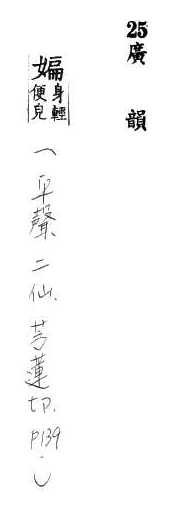 25廣韻
媥身輕便皃
(平聲二仙.芳蓮切.P139.)